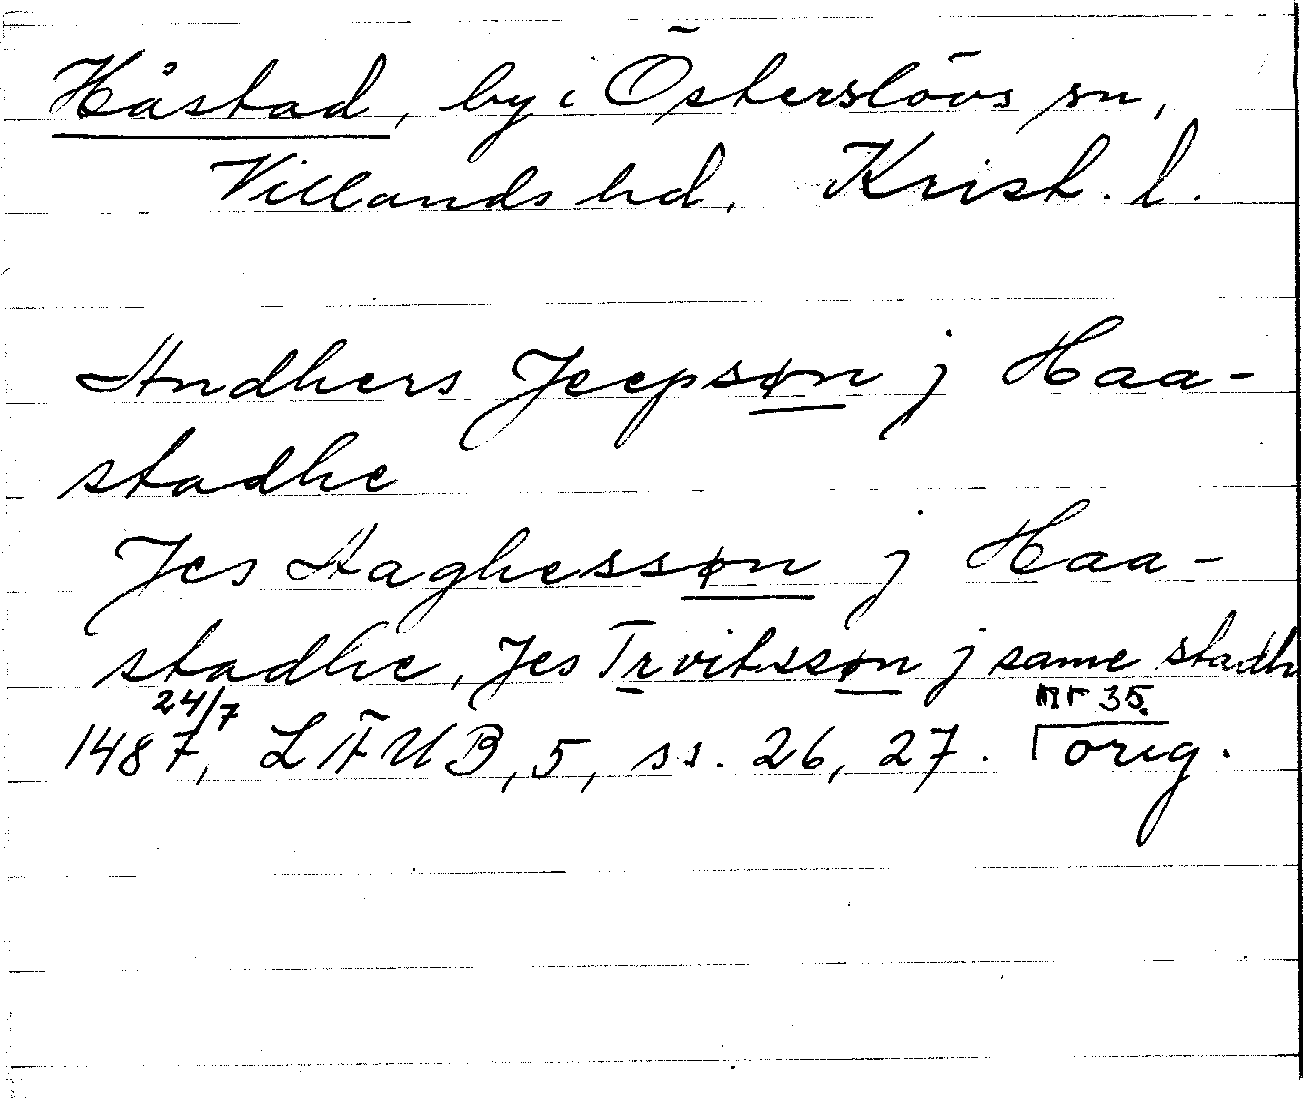 Håstad, by i Österslövs sn,
Villands hd, Krist. l.
Andhers Jeepsøn j Haa-
stadhe
Jes Aaghessøn j Haa-
stadhe, Jes Trvitssøn j same stadh
24/7 nr 35.
1487, LÄUB, 5, ss. 26, 27. orig.